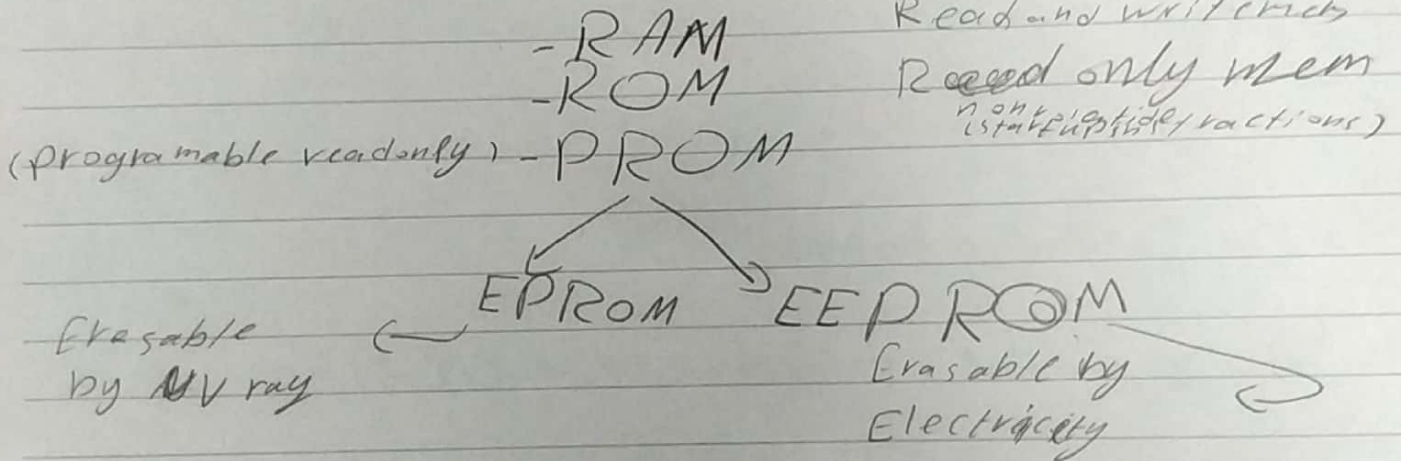 Read and write
- RAM
- ROM Read only mem
(programable readonly) - PROM
EPROM EEPROM
Erasable
by UV ray
Erasable by
Electricity